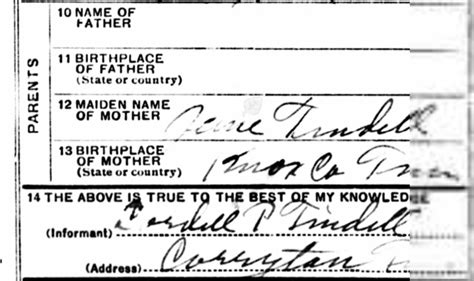 PARENTS
10 NAME OF
FATHER
11 BIRTHPLACE
OF FATHER
(State or country)
12 MAIDEN NAME
OF MOTHER Tindell
13 BIRTHPLACE
OF MOTHER
(State or country) Knox Co Tenn
14 THE ABOVE IS TRUE TO THE BEST OF MY KNOWLEDGE
(Informant) Cordell P Tindell
(Address) Corryton